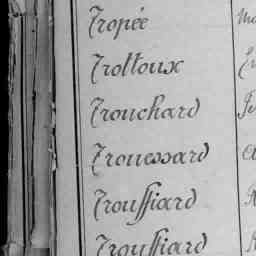 Tropée
Troltoux
Trouchard
Trouessard
Trouffiard
Trouffiard